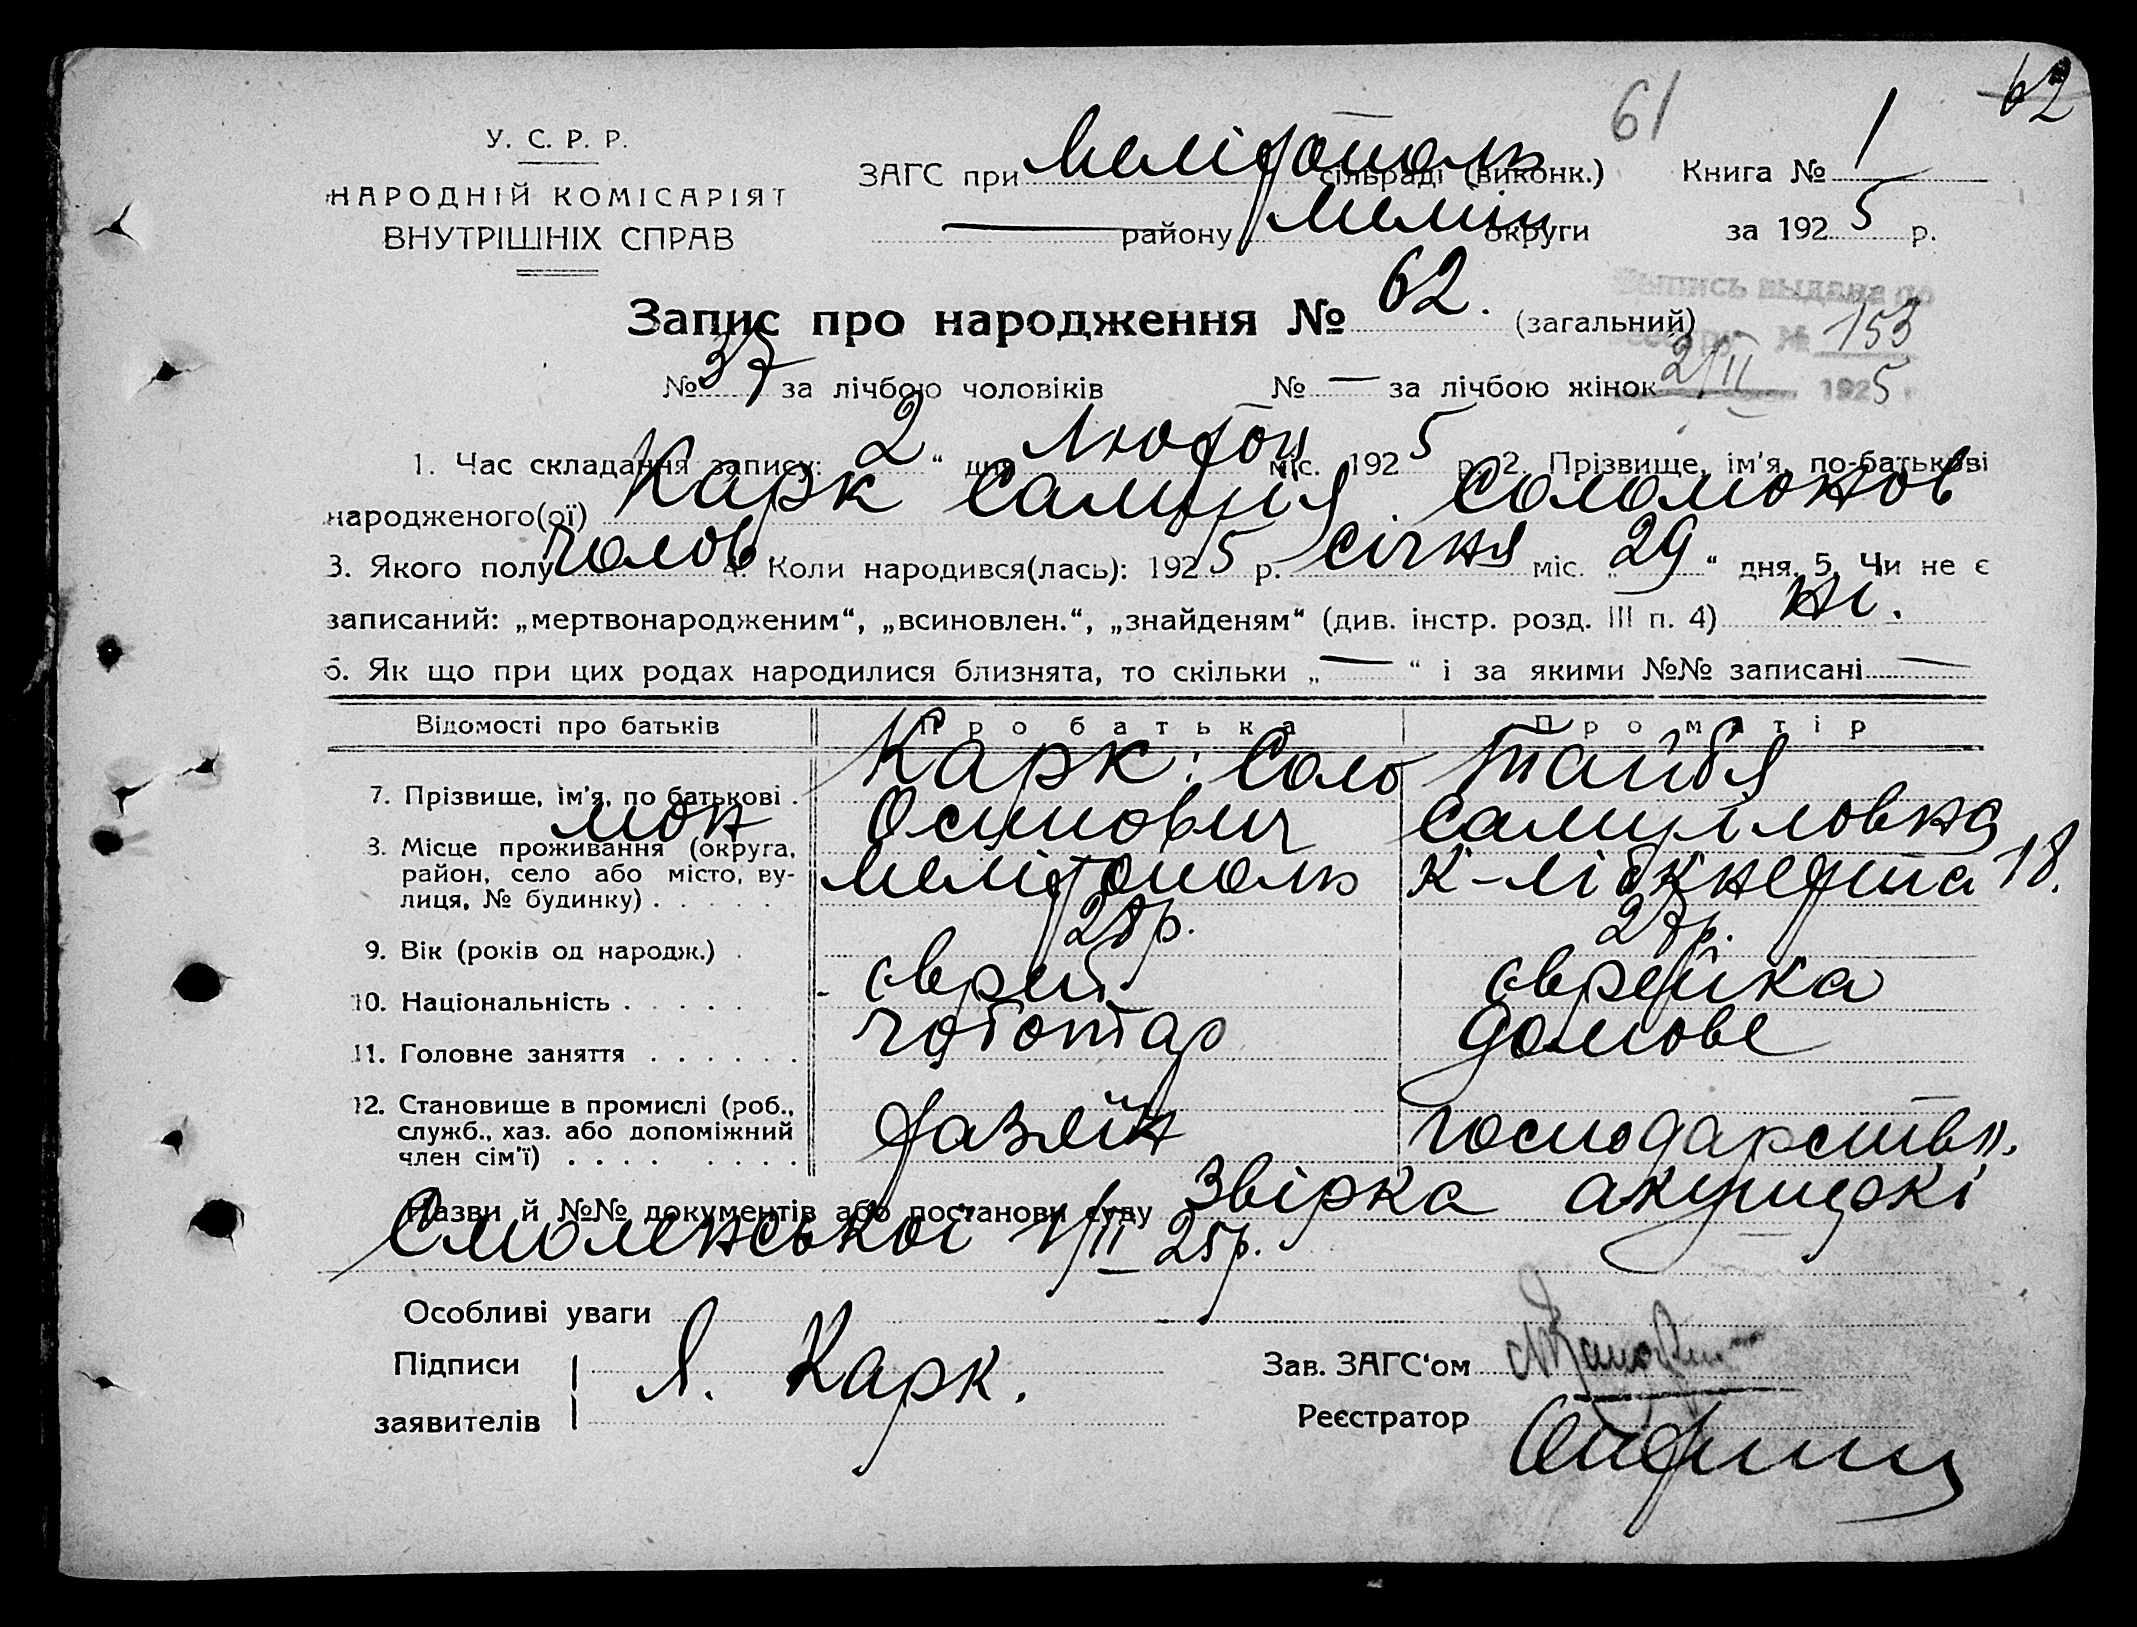 61
62
У. С. Р. Р.
НАРОДНІЙ КОМІСАРІЯТ
ВНУТРІШНІХ СПРАВ
ЗАГС при Мелітополь сільраді (виконк.) Книга № 1
— району Меліт округи за 1925 р.
Запис про народження № 62. (загальний)
Выпись выдана по
реестру № 153
2/II 1925 г.
№ 37 за лічбою чоловіків № — за лічбою жінок
1. Час складання запису: 2 “ дня Лютой міс. 1925 р. 2. Прізвище, ім'я, по-батькові
народженого(ої) Карк Самуил Соломонов
3. Якого полу чолов 4. Коли народився(лась): 1925 р. січня міс. „29“ дня. 5. Чи не є
записаний: „мертвонародженим“, „всиновлен.“, „знайденям“ (див. інстр. розд. III п. 4) ні.
6. Як що при цих родах народилися близнята, то скільки „—“ і за якими №№ записані —
Відомості про батьків Про батька Про матір
7. Прізвище, ім'я, по батькові . Карк: Соло Тайбя
мон Осипович Самуіловна
8. Місце проживання (округа,
район, село або місто, ву-
лиця, № будинку) . . . . . Мелітополь К-лібкнехта 18.
9. Вік (років од народж.) . 28р. 27р.
10. Національність . . . . . єврей єврейка
11. Головне заняття . . . . . . чоботар домове
12. Становище в промислі (роб.,
служб., хаз. або допоміжний
член сім'ї) . . . . . . . . хазяїн господарств.
Назви й №№ документів або постанови суду Звірка акушеркі
Смоленської 1/II 25р.
Особливі уваги
Підписи
заявителів Я. Карк.
Зав. ЗАГС'ом
Реєстратор